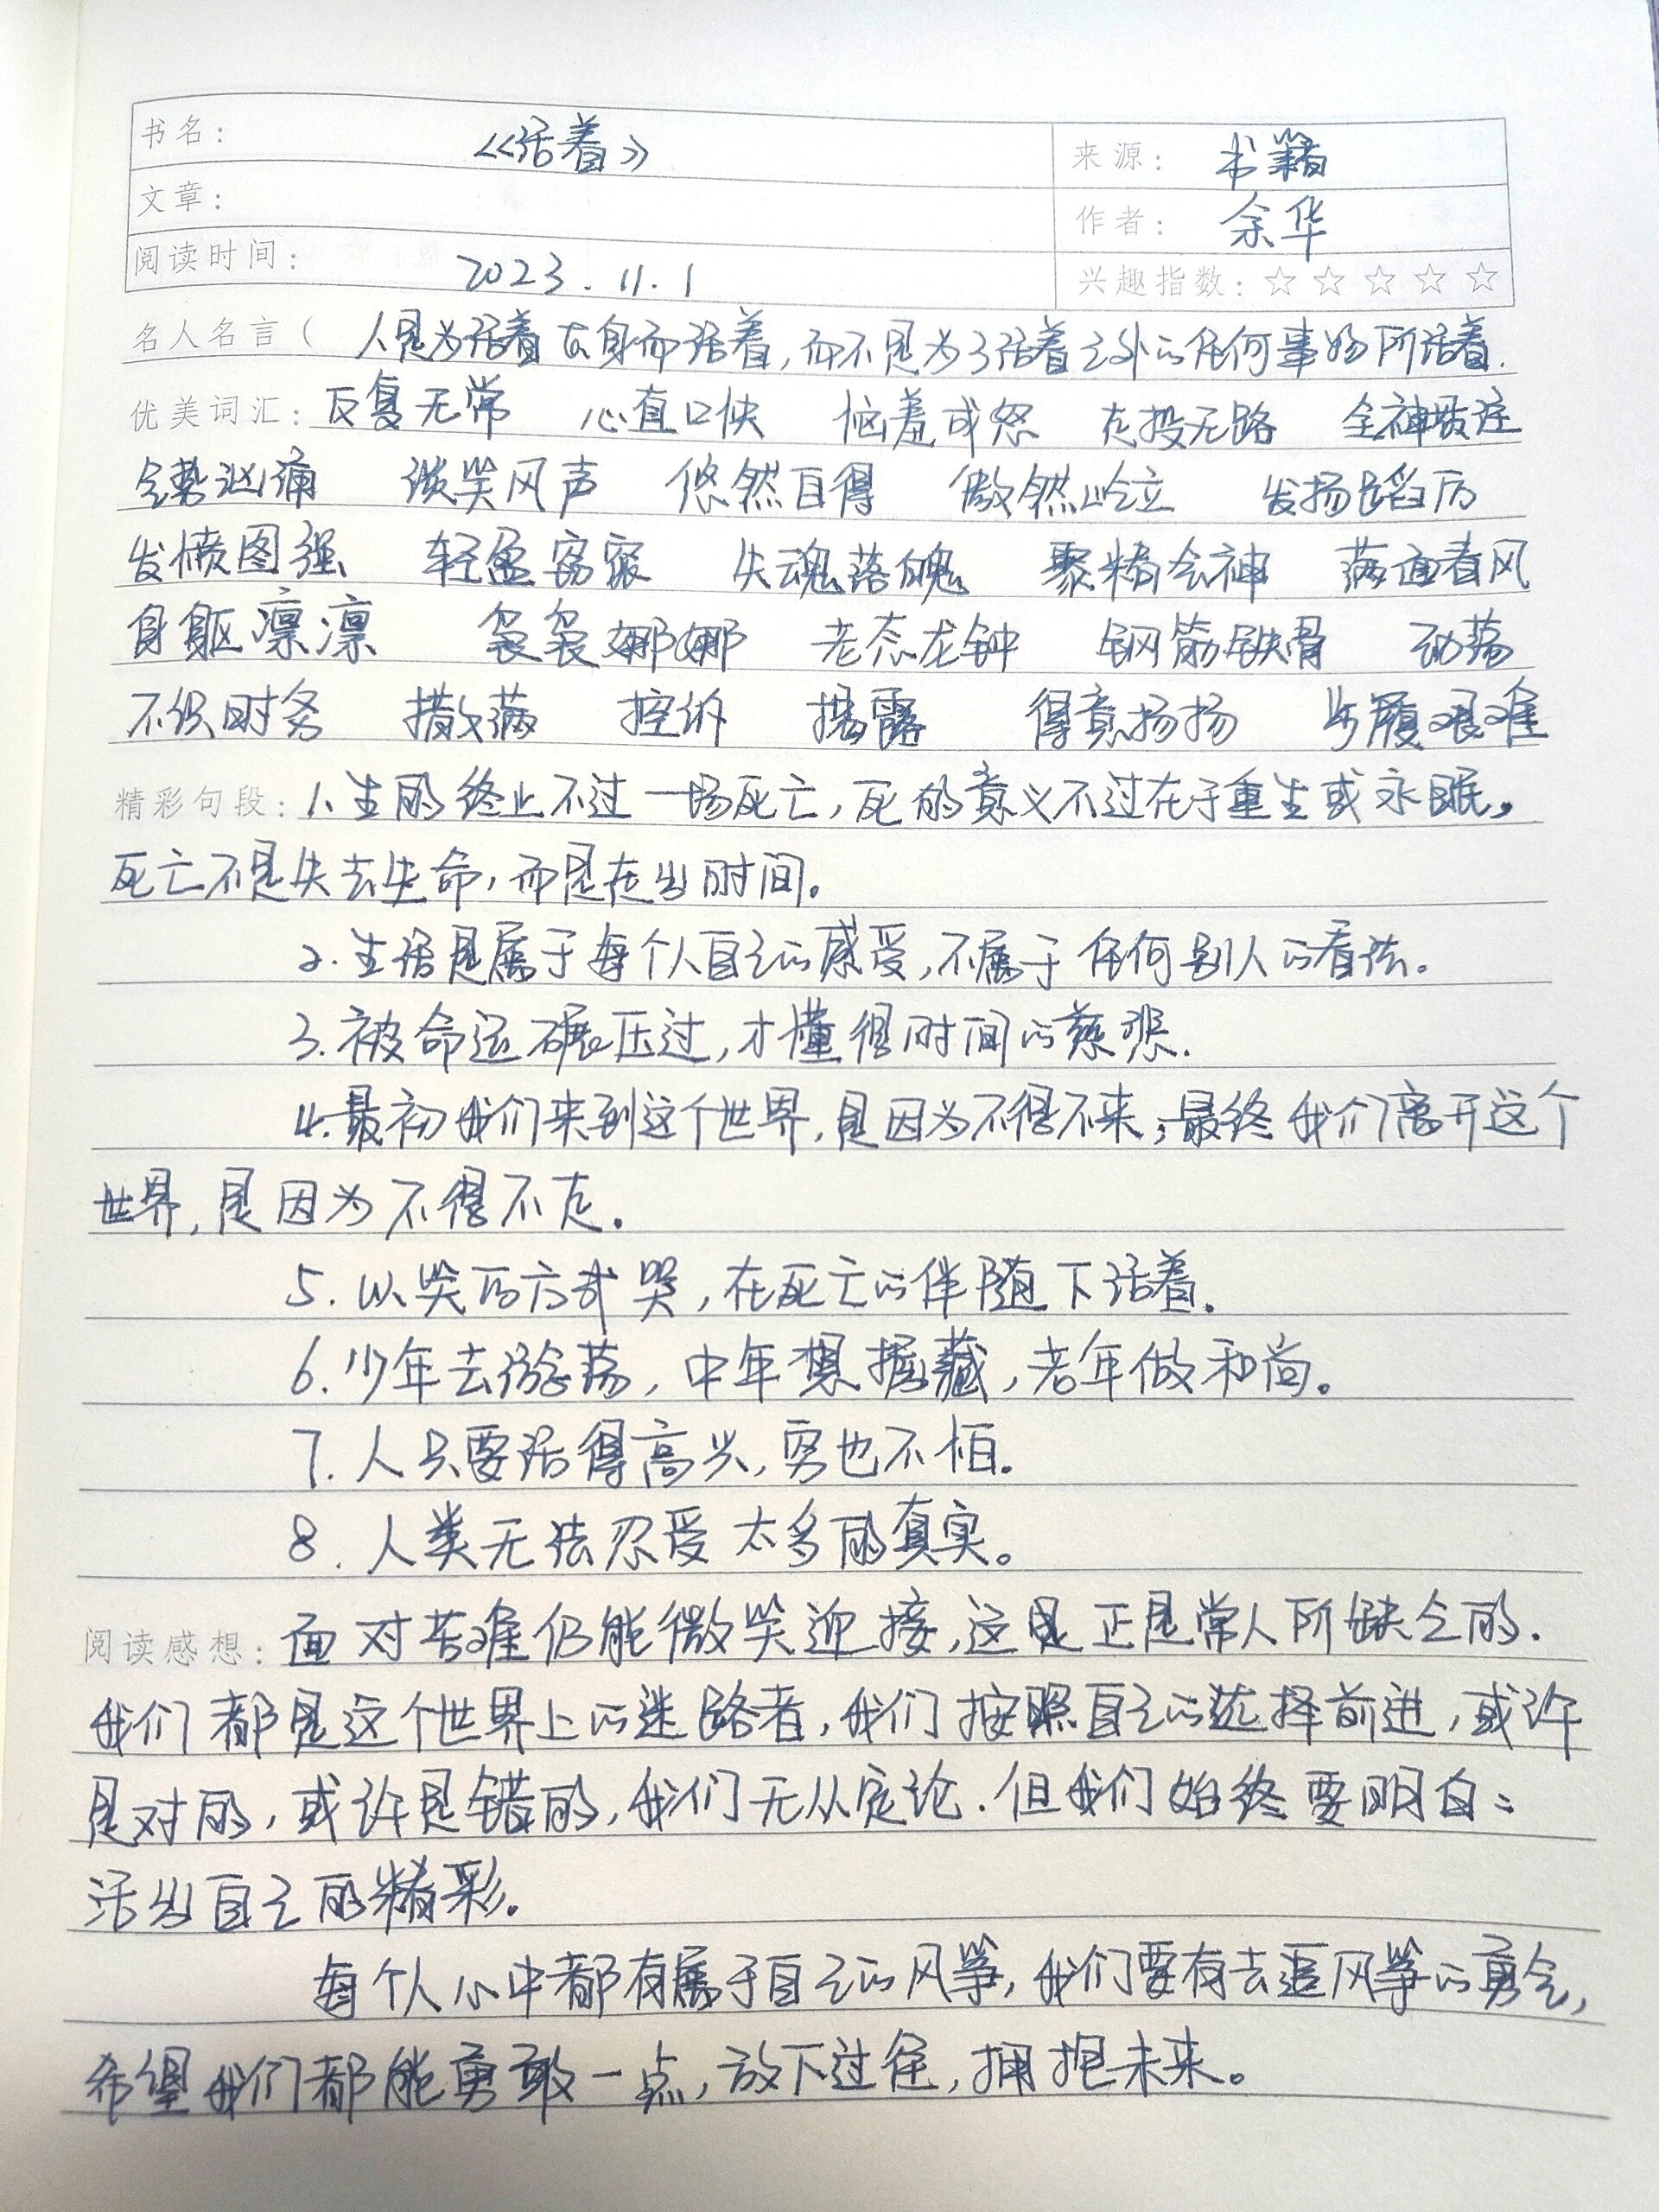 书名： 《活着》 来源： 书籍
文章： 作者： 余华
阅读时间： 2023.11.1 兴趣指数：☆☆☆☆☆
名人名言（ 人是为活着本身而活着，而不是为了活着之外的任何事物所活着.
优美词汇：反复无常 心直口快 恼羞成怒 走投无路 全神贯注
气势汹涌 谈笑风声 悠然自得 傲然屹立 发扬蹈厉
发愤图强 轻盈窈窕 失魂落魄 聚精会神 满面春风
身躯凛凛 袅袅娜娜 老态龙钟 钢筋铁骨 动荡
不识时务 撒满 控诉 揭露 得意扬扬 步履艰难
精彩句段：1.生的终止不过一场死亡，死的意义不过在于重生或永眠，
死亡不是失去生命，而是走出时间。
2.生活是属于每个人自己的感受，不属于任何别人的看法。
3.被命运碾压过，才懂得时间的慈悲.
4.最初我们来到这个世界，是因为不得不来；最终我们离开这个
世界，是因为不得不走.
5.以笑的方式哭，在死亡的伴随下活着.
6.少年去游荡，中年想掘藏，老年做和尚。
7.人只要活得高兴，穷也不怕.
8.人类无法忍受太多的真实。
阅读感想：面对苦难仍能微笑迎接，这是正是常人所缺乏的.
我们都是这个世界上的迷路者，我们按照自己的选择前进，或许
是对的，或许是错的，我们无从定论.但我们始终要明白：
活出自己的精彩.
每个人心中都有属于自己的风筝，我们要有去追风筝的勇气，
希望我们都能勇敢一点，放下过往，拥抱未来。